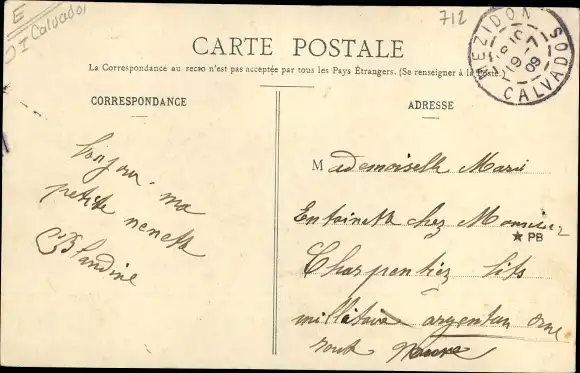 E
Calvados
712
MEZIDON
19-7
09
CALVADOS
CARTE POSTALE
La Correspondance au recto n'est pas acceptée par tous les Pays Étrangers. (Se renseigner à la Poste.)
CORRESPONDANCE
ADRESSE
bonjour ma
petite nenette
Blandine
Mademoiselle Marie
Entoinette chez Monsieur
★ PB
Charpentiez lits
millitaire argentan orne